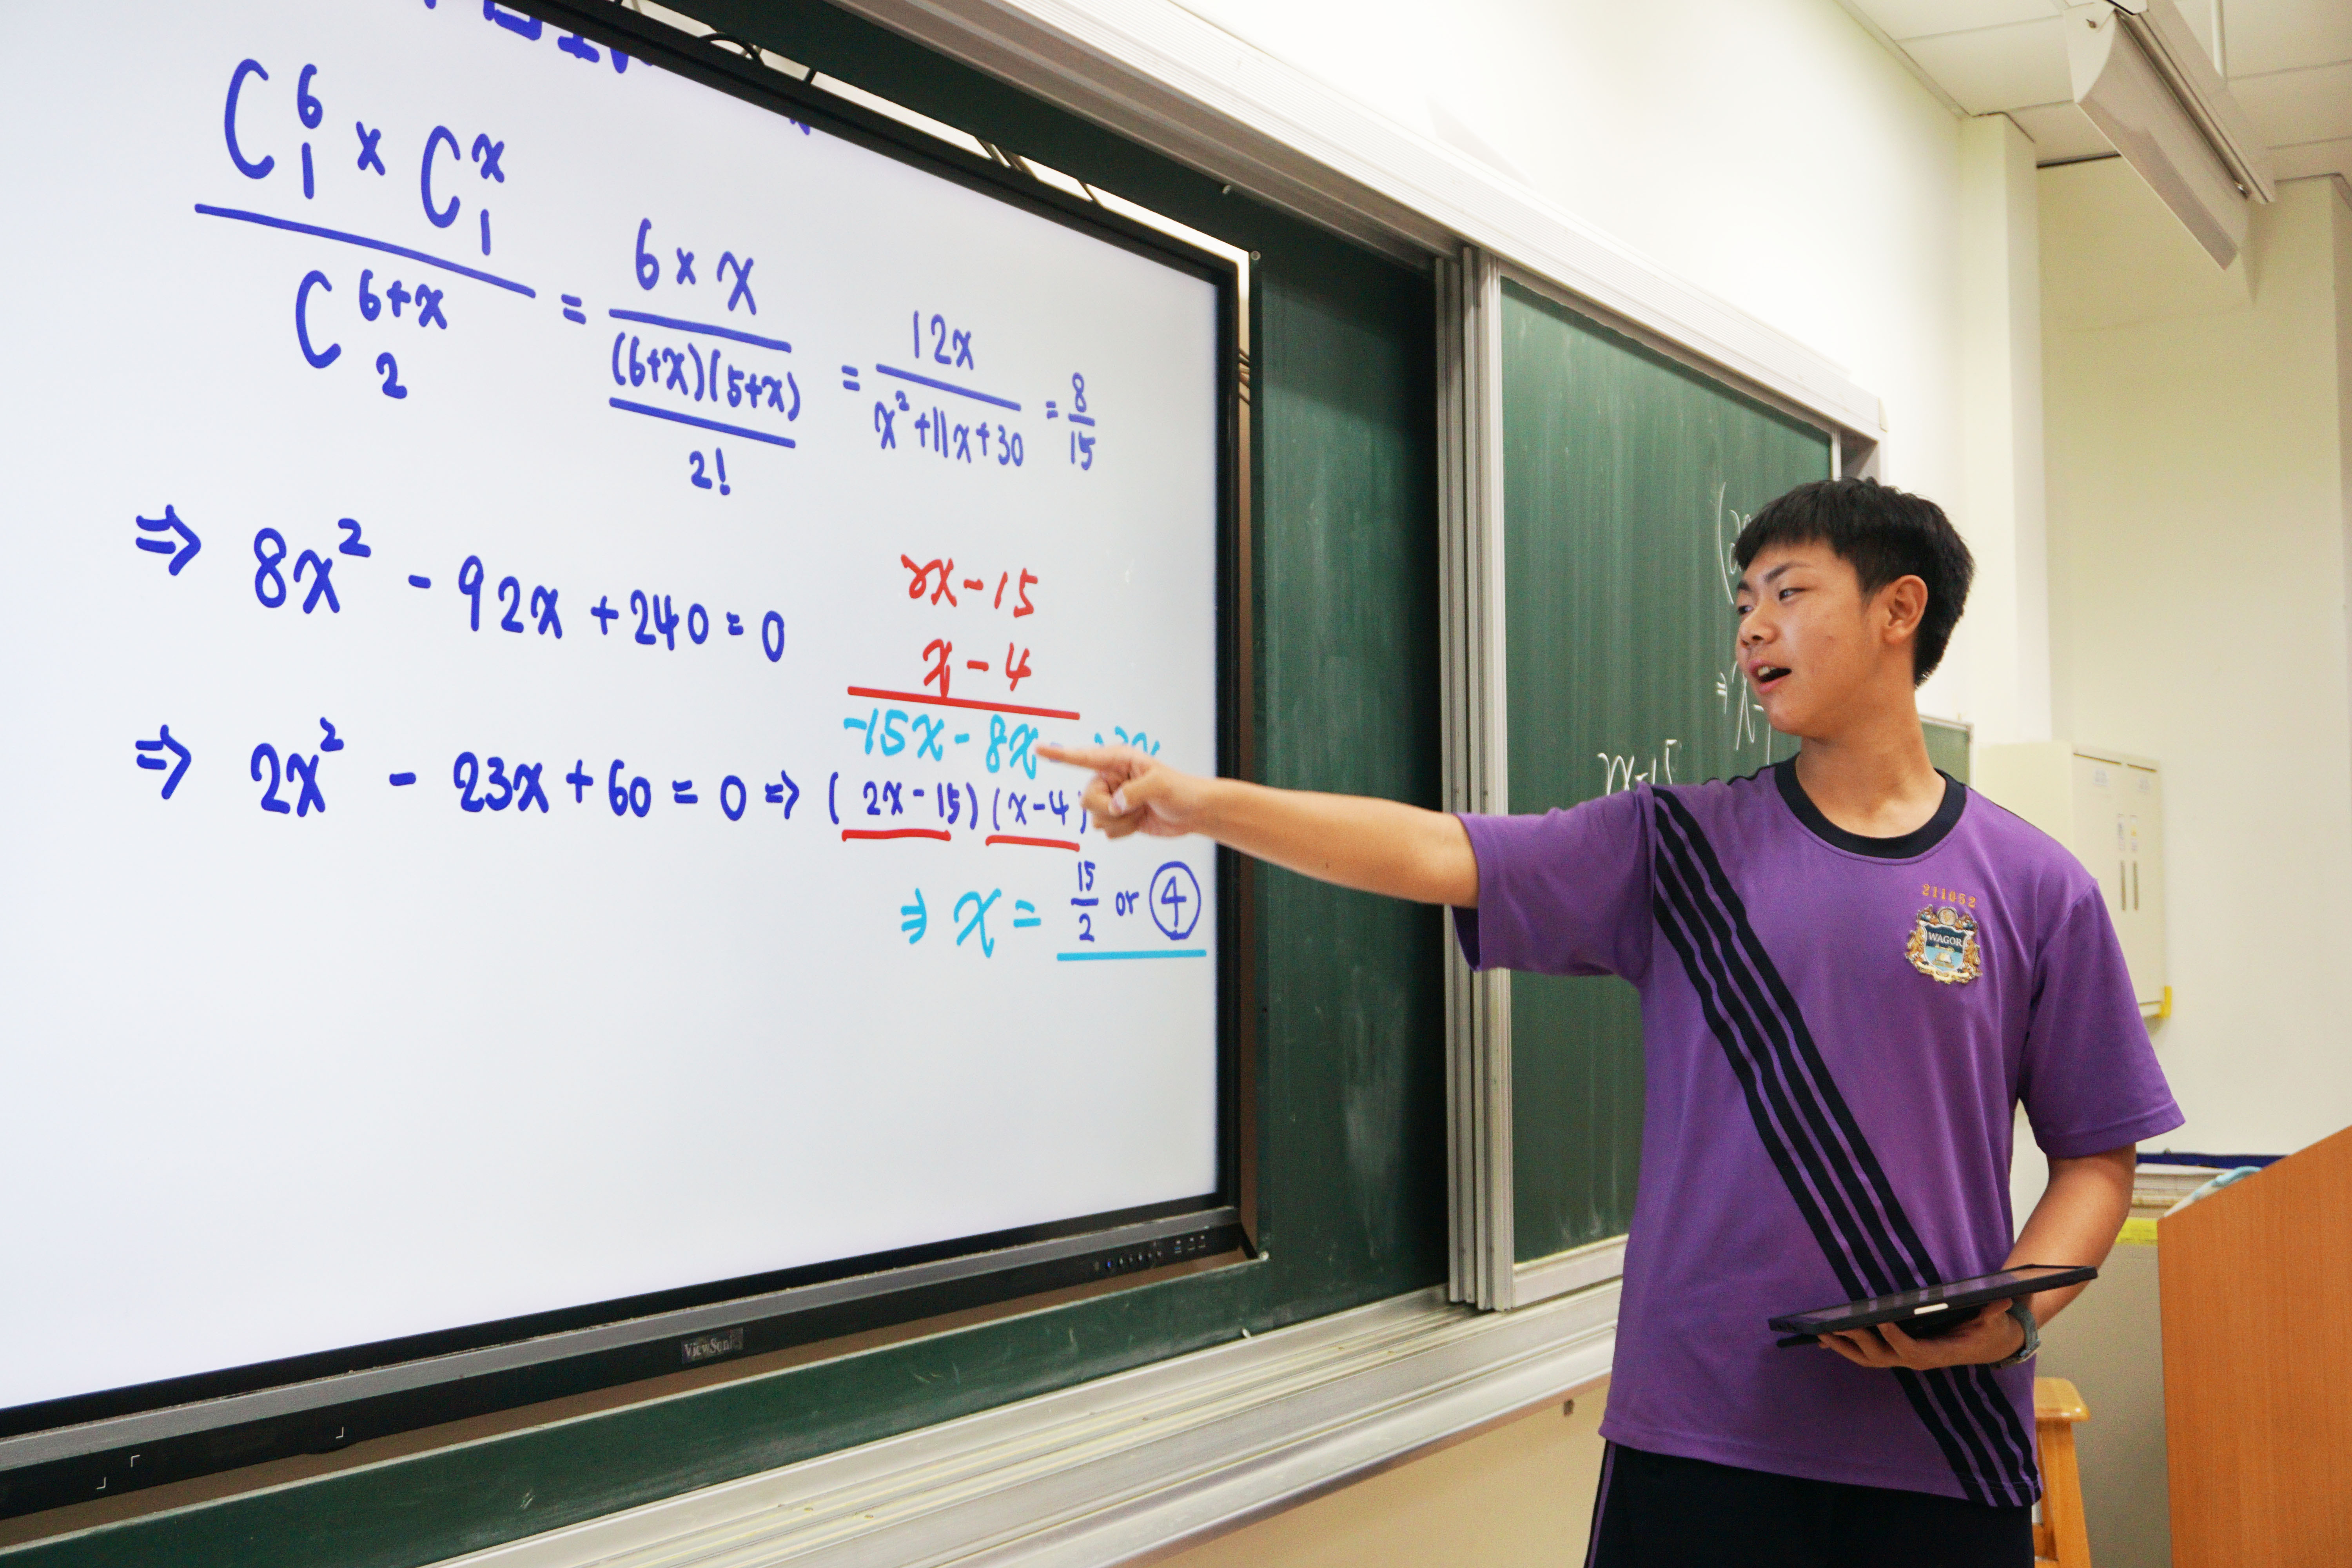 C⁶₁ × Cˣ₁ / C⁶⁺ˣ₂ = 6 × x / ((6+x)(5+x) / 2!) = 12x / (x² + 11x + 30) = 8/15
⇒ 8x² - 92x + 240 = 0
2x - 15
x - 4
-15x - 8x
⇒ 2x² - 23x + 60 = 0 ⇒ (2x - 15)(x - 4)
⇒ x = 15/2 or ④
ViewSonic
211052
WAGOR